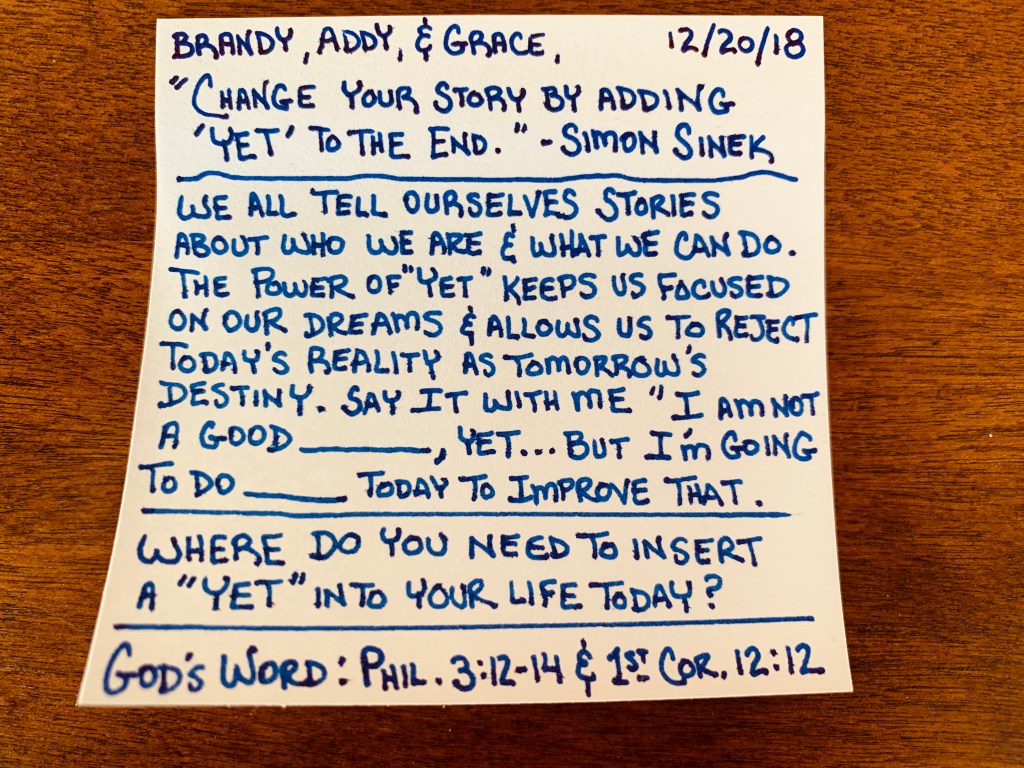 BRANDY, ADDY, & GRACE, 12/20/18
"CHANGE YOUR STORY BY ADDING
'YET' TO THE END." - SIMON SINEK
WE ALL TELL OURSELVES STORIES
ABOUT WHO WE ARE & WHAT WE CAN DO.
THE POWER OF "YET" KEEPS US FOCUSED
ON OUR DREAMS & ALLOWS US TO REJECT
TODAY'S REALITY AS TOMORROW'S
DESTINY. SAY IT WITH ME "I AM NOT
A GOOD ______, YET... BUT I'M GOING
TO DO _____ TODAY TO IMPROVE THAT.
WHERE DO YOU NEED TO INSERT
A "YET" INTO YOUR LIFE TODAY?
GOD'S WORD: PHIL. 3:12-14 & 1ST COR. 12:12